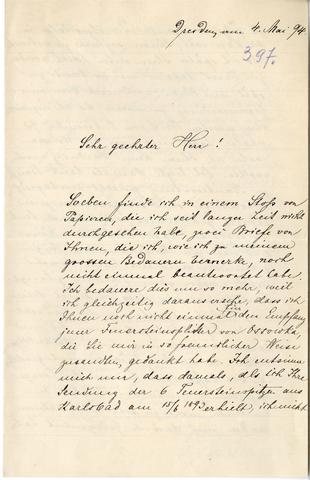 Dresden, am 4. Mai 94
397.
Sehr geehrter Herr!
Soeben finde ich in einem Stoß von
Papieren, die ich seit langer Zeit nicht
durchgesehen habe, zwei Briefe von
Ihnen, die ich, wie ich zu meinem
grossen Bedauern bemerke, noch
nicht einmal beantwortet habe.
Ich bedauere dies um so mehr, weil
ich gleichzeitig daraus ersehe, dass ich
Ihnen noch nicht einmal für den Empfang
jener Feuersteinsplitter von
die Sie mir in so freundlicher Weise
gesandten, gedankt habe. Ich entsinne
mich nur, dass damals, als ich Ihre
Sendung der 6 Feuersteinspitzen aus
Karlsbad am 15/6 1893 erhielt, ich nicht